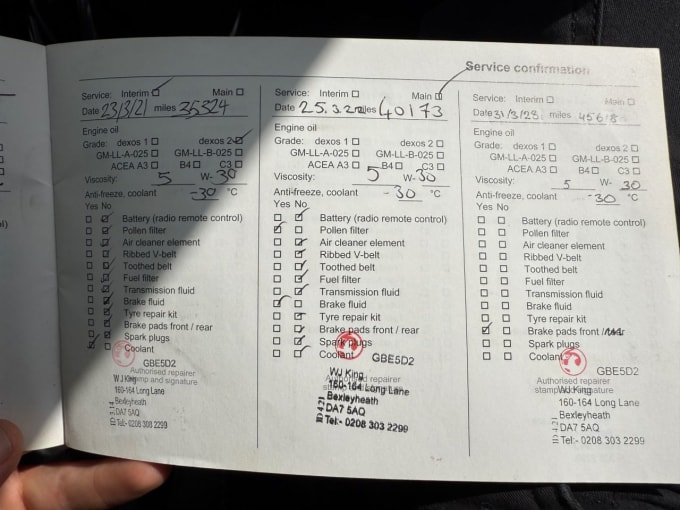 Service confirmation
Service: Interim Main
Date 23/3/21 miles 35324
Engine oil
Grade: dexos 1 dexos 2
GM-LL-A-025 GM-LL-B-025
ACEA A3 B4 C3
Viscosity: 5 W-30
Anti-freeze, coolant -30 °C
Yes No
Battery (radio remote control)
Pollen filter
Air cleaner element
Ribbed V-belt
Toothed belt
Fuel filter
Transmission fluid
Brake fluid
Tyre repair kit
Brake pads front / rear
Spark plugs
Coolant
GBE5D2
Authorised repairer
stamp and signature
WJ King
160-164 Long Lane
Bexleyheath
DA7 5AQ
Tel:- 0208 303 2299
Service: Interim Main
Date 25.3.22 miles 40173
Engine oil
Grade: dexos 1 dexos 2
GM-LL-A-025 GM-LL-B-025
ACEA A3 B4 C3
Viscosity: 5 W-30
Anti-freeze, coolant -30 °C
Yes No
Battery (radio remote control)
Pollen filter
Air cleaner element
Ribbed V-belt
Toothed belt
Fuel filter
Transmission fluid
Brake fluid
Tyre repair kit
Brake pads front / rear
Spark plugs
Coolant
GBE5D2
Authorised repairer
WJ King
160-164 Long Lane
Bexleyheath
DA7 5AQ
Tel:- 0208 303 2299
Service: Interim Main
Date 31/3/23 miles 45618
Engine oil
Grade: dexos 1 dexos 2
GM-LL-A-025 GM-LL-B-025
ACEA A3 B4 C3
Viscosity: 5 W- 30
Anti-freeze, coolant -30 °C
Yes No
Battery (radio remote control)
Pollen filter
Air cleaner element
Ribbed V-belt
Toothed belt
Fuel filter
Transmission fluid
Brake fluid
Tyre repair kit
Brake pads front / rear
Spark plugs
Coolant
GBE5D2
Authorised repairer
WJ King
160-164 Long Lane
Bexleyheath
DA7 5AQ
Tel:- 0208 303 2299